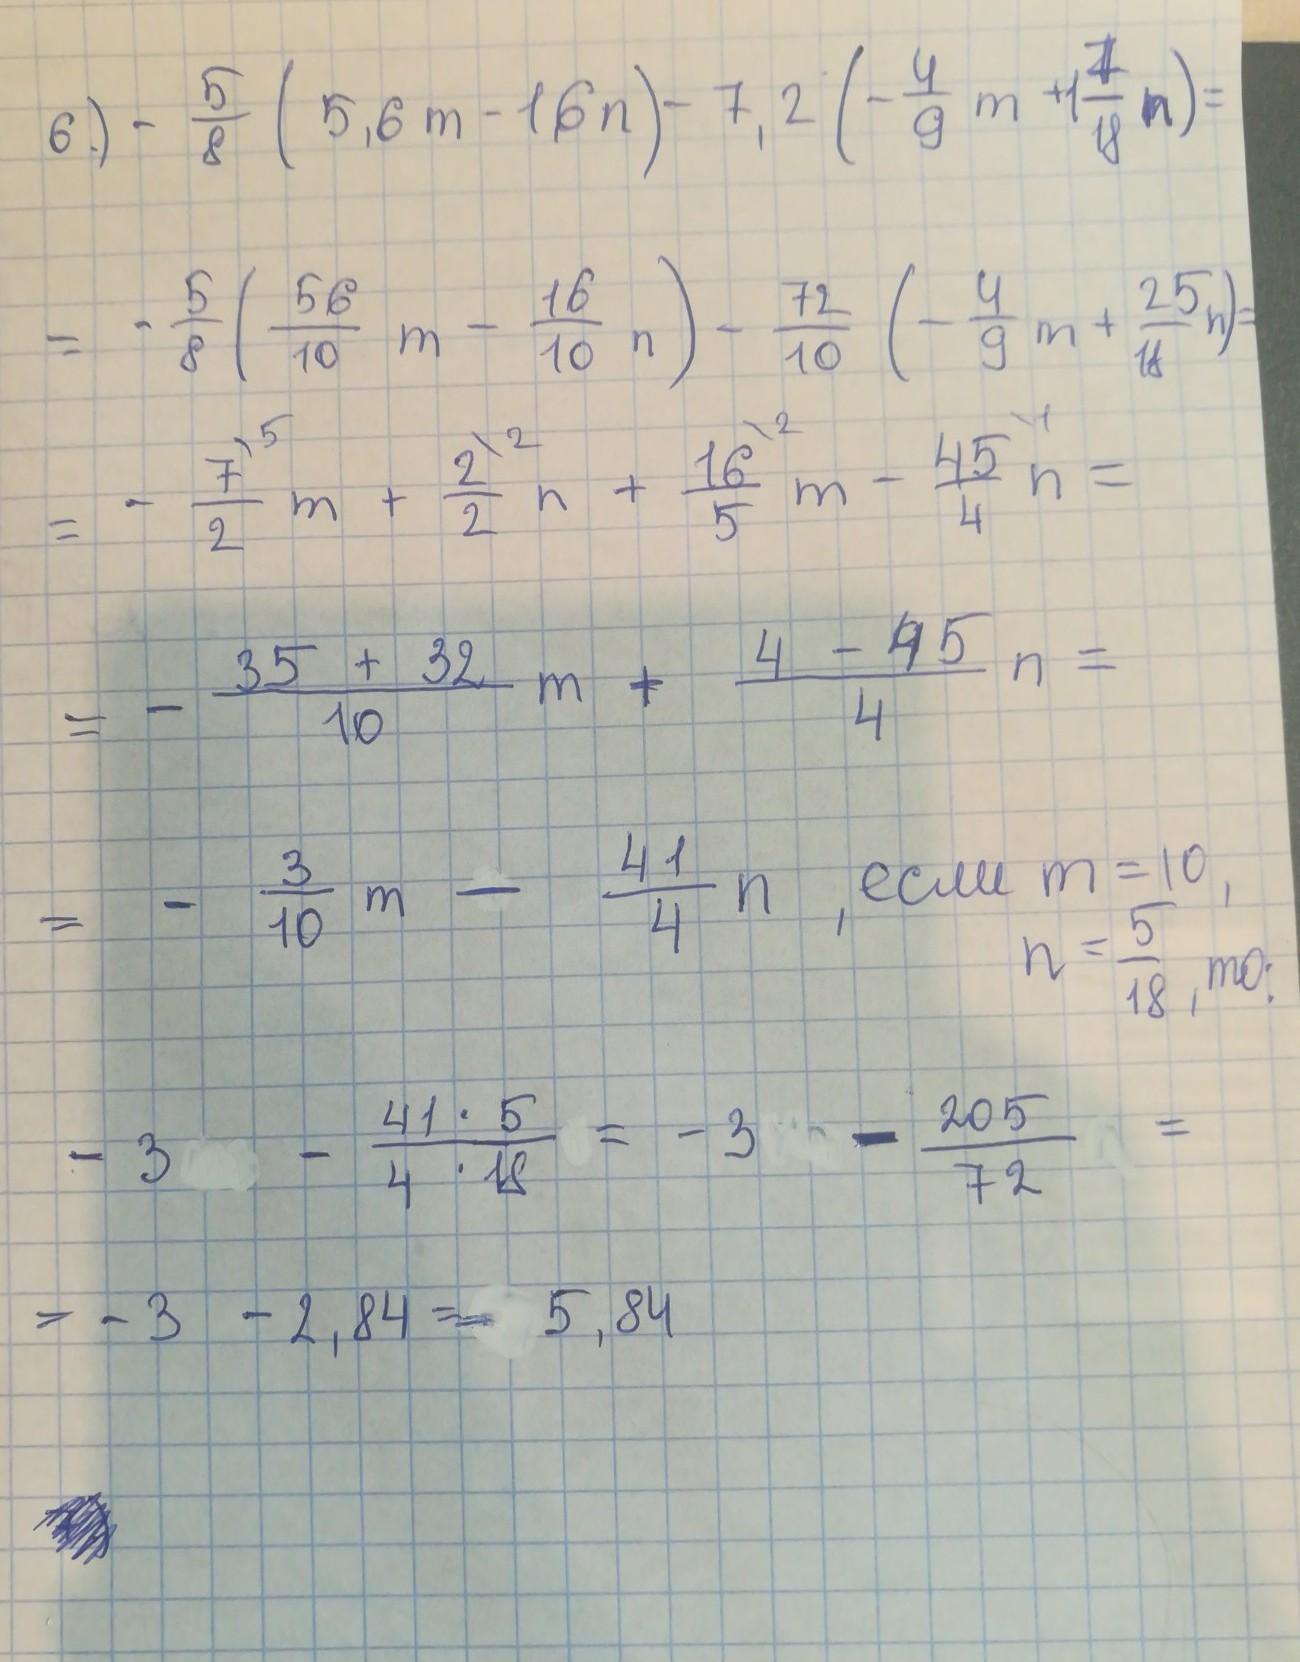 6.) - 5/8 ( 5,6 m - 16 n ) - 7,2 ( - 4/9 m + 1 7/18 n ) =
= - 5/8 ( 56/10 m - 16/10 n ) - 72/10 ( - 4/9 m + 25/18 n ) =
= - 7/2 \5 m + 2/2 \2 n + 16/5 \2 m - 45/4 \1 n =
= - 35 + 32/10 m + 4 - 45/4 n =
= - 3/10 m - 41/4 n , если m = 10,
n = 5/18 , то:
- 3 - 41 · 5/4 · 18 = - 3 - 205/72 =
= - 3 - 2,84 = - 5,84